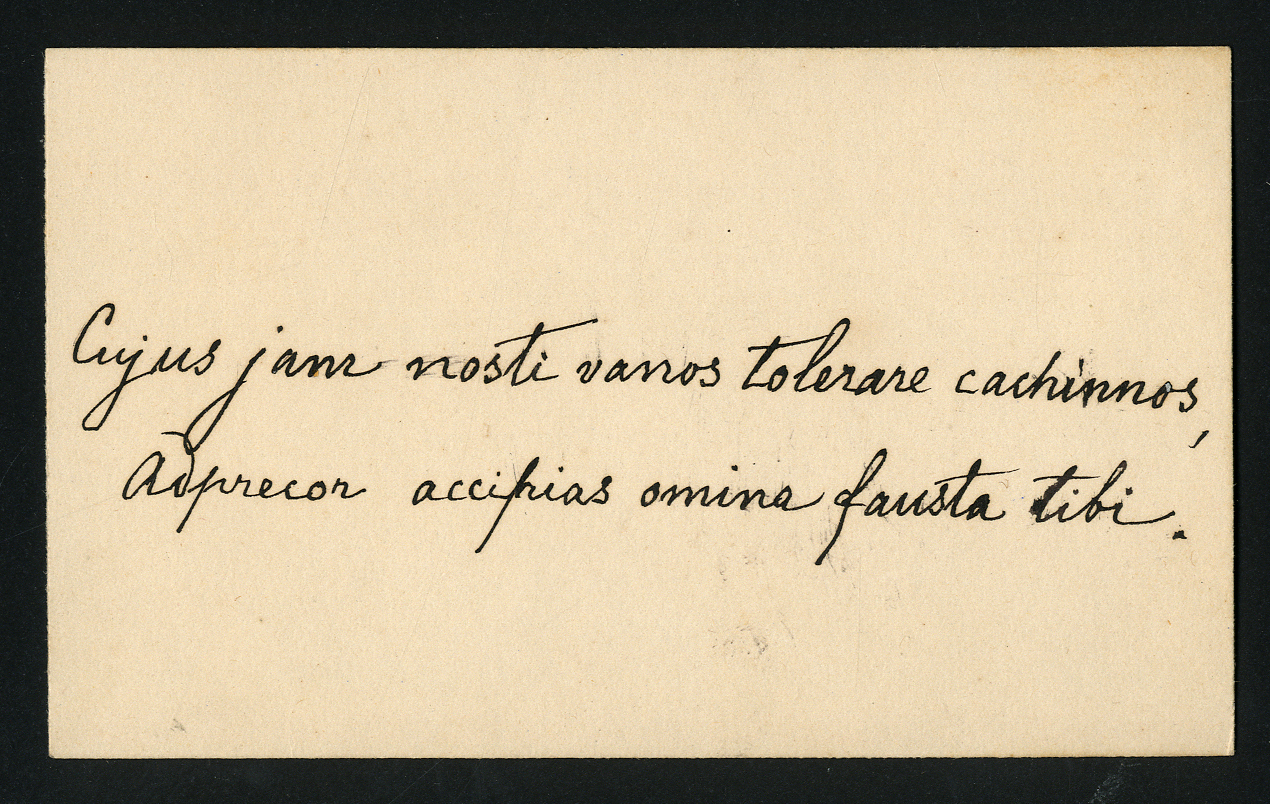 Cujus jam nosti vanos tolerare cachinnos,
Adprecor accipias omina fausta tibi.